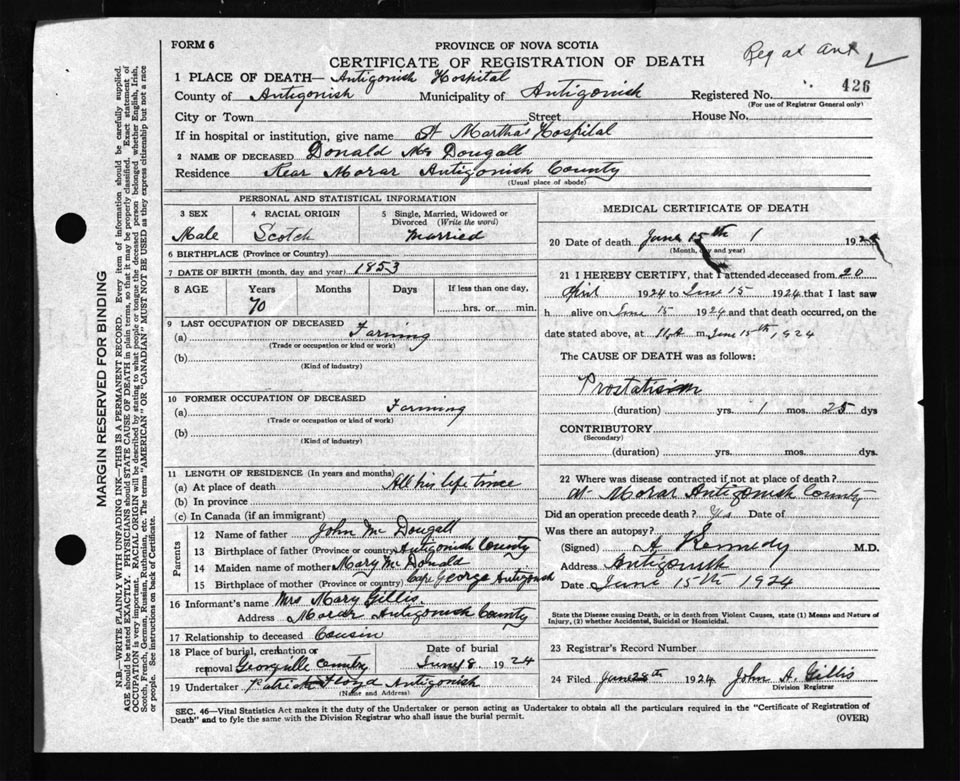 FORM 6
PROVINCE OF NOVA SCOTIA
CERTIFICATE OF REGISTRATION OF DEATH
Reg at Ant
1 PLACE OF DEATH— Antigonish Hospital
County of Antigonish Municipality of Antigonish Registered No. 426
(For use of Registrar General only)
City or Town Street House No.
If in hospital or institution, give name St Martha's Hospital
2 NAME OF DECEASED Donald Mc Dougall
Residence Rear Morar Antigonish County
(Usual place of abode)
PERSONAL AND STATISTICAL INFORMATION
3 SEX 4 RACIAL ORIGIN 5 Single, Married, Widowed or Divorced (Write the word)
Male Scotch Married
6 BIRTHPLACE (Province or Country)
7 DATE OF BIRTH (month, day and year) 1853
8 AGE Years Months Days If less than one day,
70 hrs. or min.
9 LAST OCCUPATION OF DECEASED
(a) Farming
(Trade or occupation or kind of work)
(b)
(Kind of industry)
10 FORMER OCCUPATION OF DECEASED
(a) Farming
(Trade or occupation or kind of work)
(b)
(Kind of industry)
11 LENGTH OF RESIDENCE (In years and months)
(a) At place of death All his life time
(b) In province
(c) In Canada (if an immigrant)
Parents
12 Name of father John Mc Dougall
13 Birthplace of father (Province or country) Antigonish County
14 Maiden name of mother Mary Mc Donald
15 Birthplace of mother (Province or country) Cape George Antigonish
16 Informant's name Mrs Mary Gillis
Address Morar Antigonish County
17 Relationship to deceased Cousin
18 Place of burial, cremation or removal Georgville Date of burial June 18 1924
19 Undertaker Patrick Floyd Antigonish
(Name and Address)
MEDICAL CERTIFICATE OF DEATH
20 Date of death June 15th 1924
(Month, day and year)
21 I HEREBY CERTIFY, that I attended deceased from 20
April 1924 to June 15 1924 that I last saw
h alive on June 15 1924 and that death occurred, on the
date stated above, at 11 A m June 15th, 1924
The CAUSE OF DEATH was as follows:
Prostatism
(duration) yrs. 1 mos. 25 dys
CONTRIBUTORY
(Secondary)
(duration) yrs. mos. dys.
22 Where was disease contracted if not at place of death?
at Morar Antigonish County
Did an operation precede death? Yes Date of
Was there an autopsy?
(Signed) Kennedy M.D.
Address Antigonish
Date June 15th 1924
State the Disease causing Death, or in death from Violent Causes, state (1) Means and Nature of
Injury, (2) whether Accidental, Suicidal or Homicidal.
23 Registrar's Record Number
24 Filed June 28th 1924 John A. Gillis
Division Registrar
SEC. 46—Vital Statistics Act makes it the duty of the Undertaker or person acting as Undertaker to obtain all the particulars required in the "Certificate of Registration of
Death" and to fyle the same with the Division Registrar who shall issue the burial permit.
(OVER)
MARGIN RESERVED FOR BINDING
N.B.—WRITE PLAINLY WITH UNFADING INK—THIS IS A PERMANENT RECORD. Every item of information should be carefully supplied.
AGE should be stated EXACTLY. PHYSICIANS should STATE CAUSE OF DEATH in plain terms, so that it may be properly classified. Exact statement of
OCCUPATION is very important. RACIAL ORIGIN will be described by stating to what people or tongue the deceased person belonged whether English, Irish,
Scotch, French, German, Russian, Ruthenian, etc. The terms "AMERICAN" or "CANADIAN" MUST NOT BE USED as they express citizenship but not a race
or people. See instructions on back of Certificate.